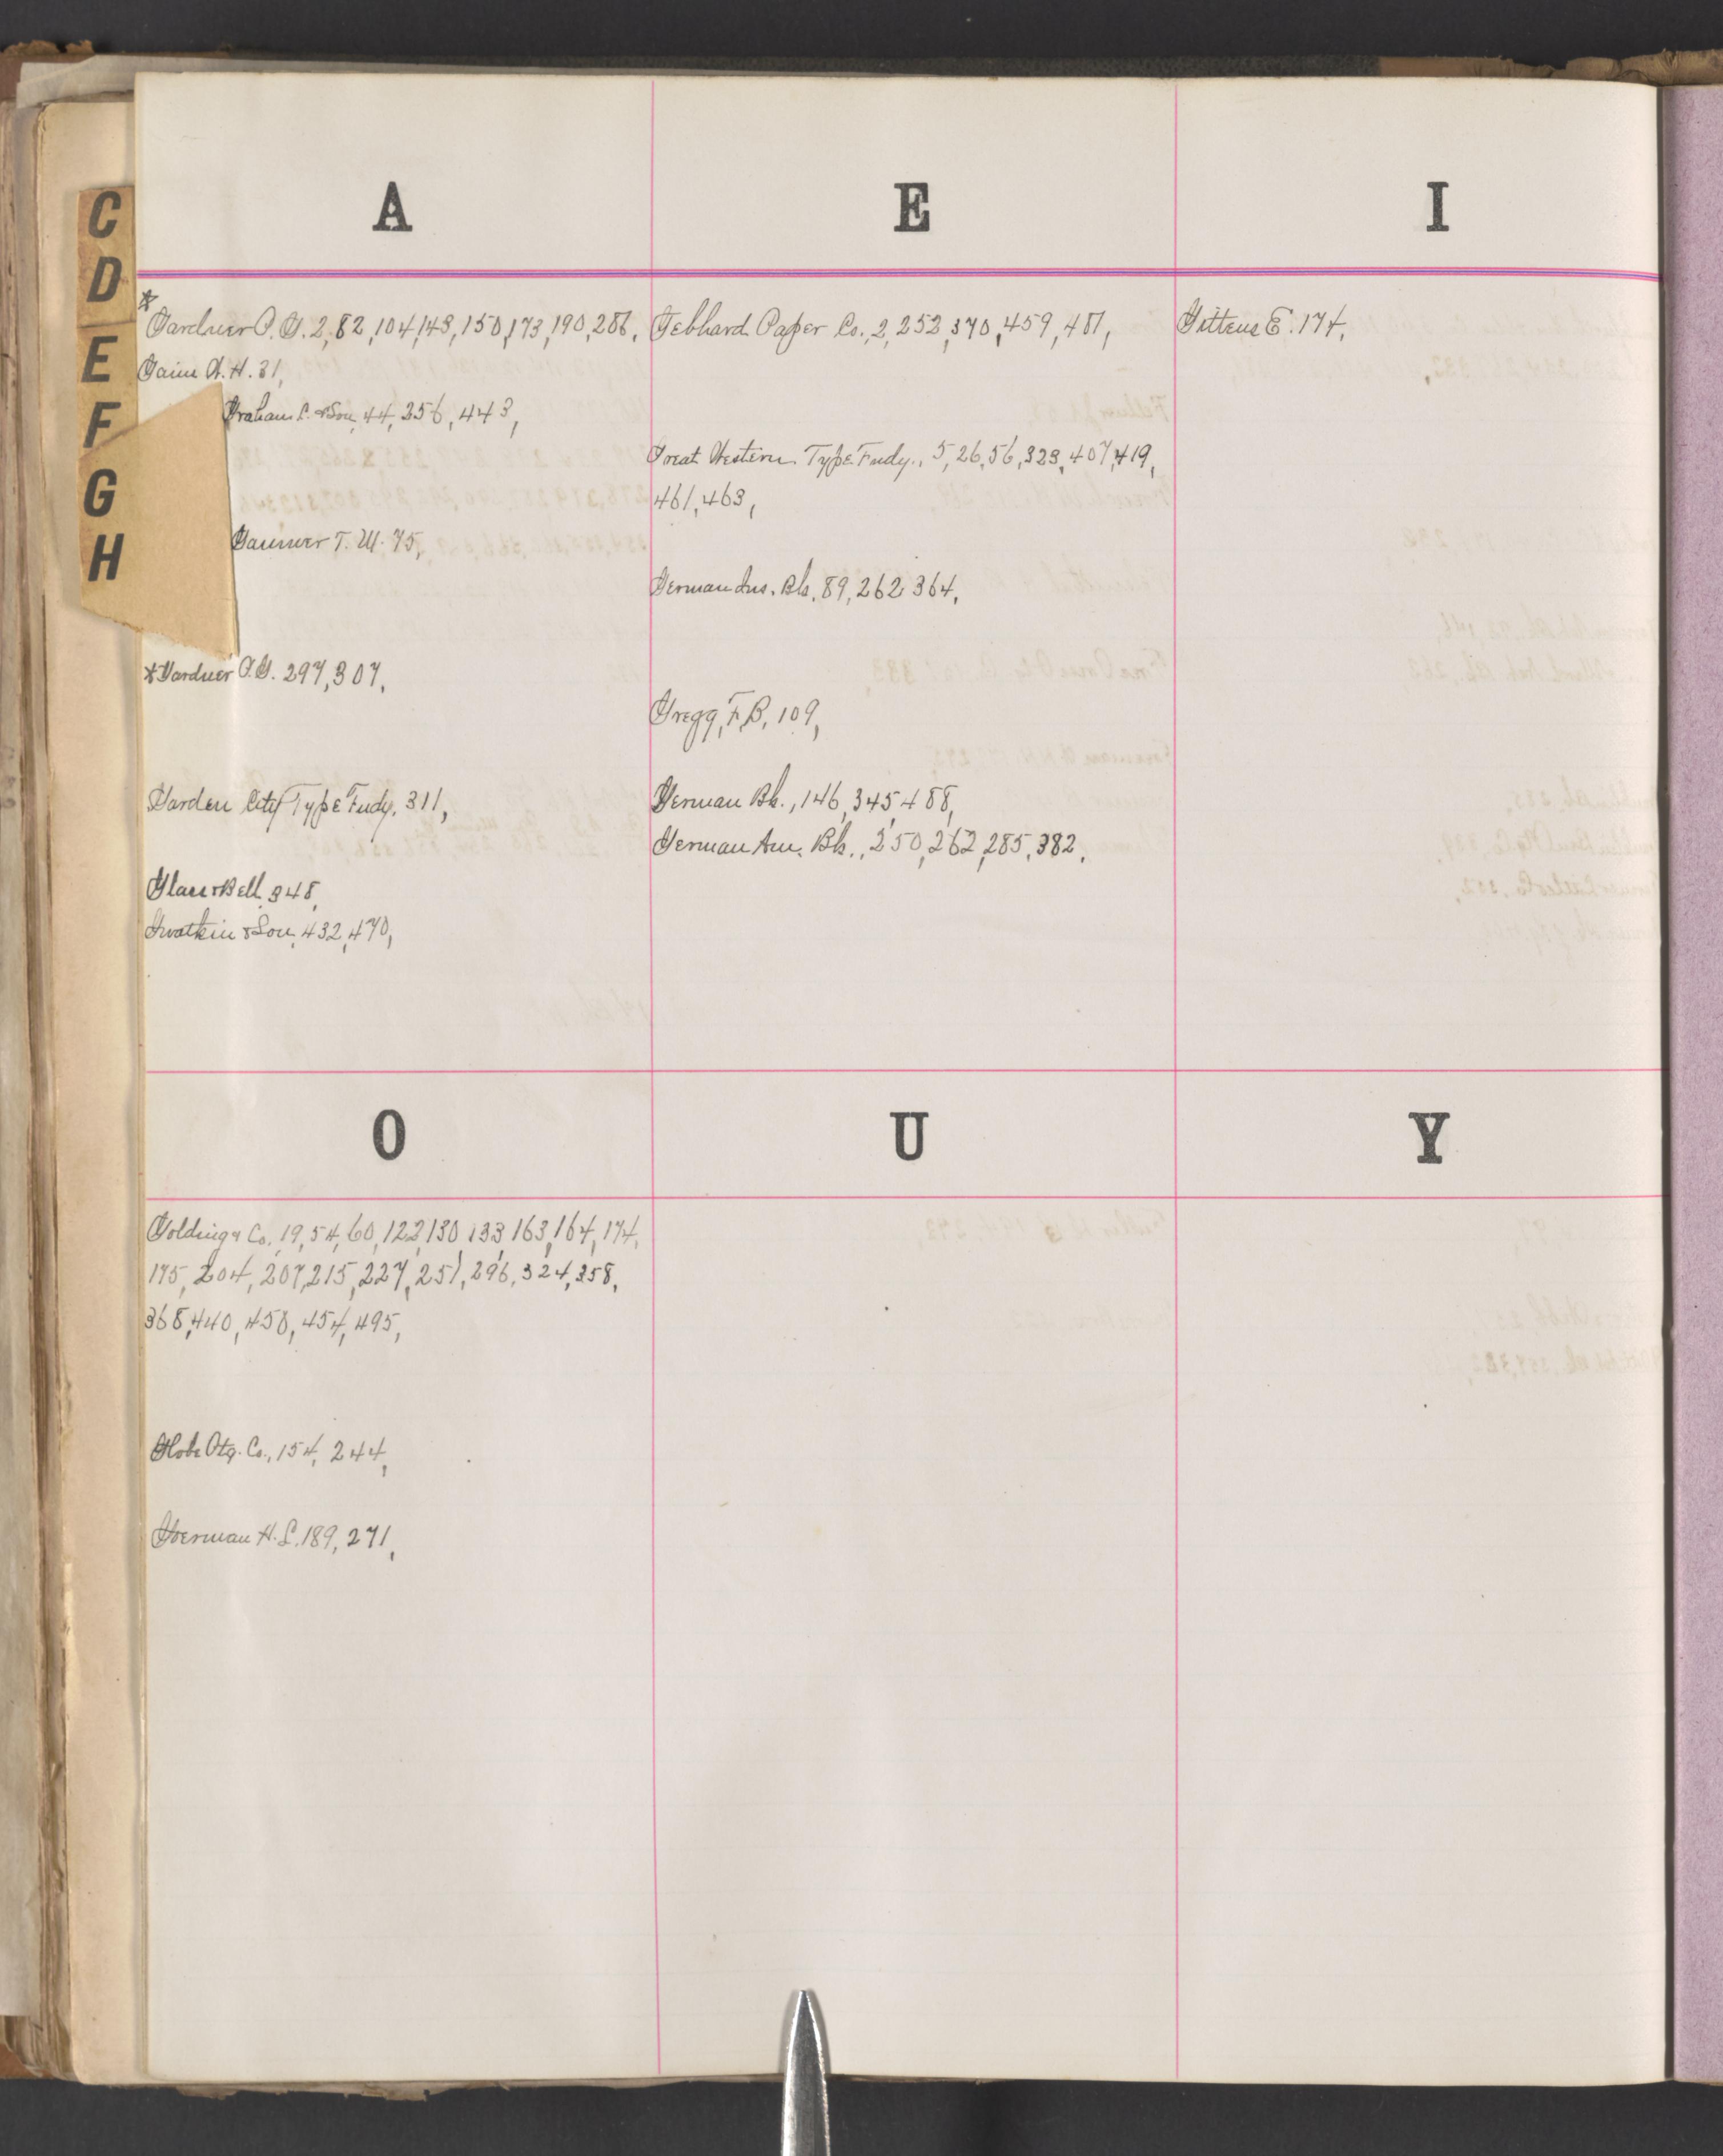 C
D
E
F
G
H
A
*Gardner O. G. 2, 82, 104, 148, 150, 173, 190, 286,
Gaim A. H. 31,
Graham L. & Son, 44, 256, 443,
Gaumer T. M. 75,
*Gardner O. G. 297, 307,
Garden City Type Fndy, 311,
Glaser & Bell, 348,
Gwatkin & Son, 432, 470,
E
Gebhard Paper Co., 2, 252, 370, 459, 481,
Great Western Type Fndy., 5, 26, 56, 323, 407, 419,
461, 463,
German Ins. Bk. 89, 262, 364,
Gregg, F. B, 109,
German Bk., 146, 345, 488,
German Am. Bk., 250, 262, 285, 382,
I
Gittens E. 174,
O
Golding & Co. 19, 54, 60, 122, 130, 133, 163, 164, 174,
175, 204, 207, 215, 227, 251, 296, 324, 358,
368, 440, 450, 454, 495,
Globe Ptg. Co., 154, 244,
Goerman H. L. 189, 271,
U
Y